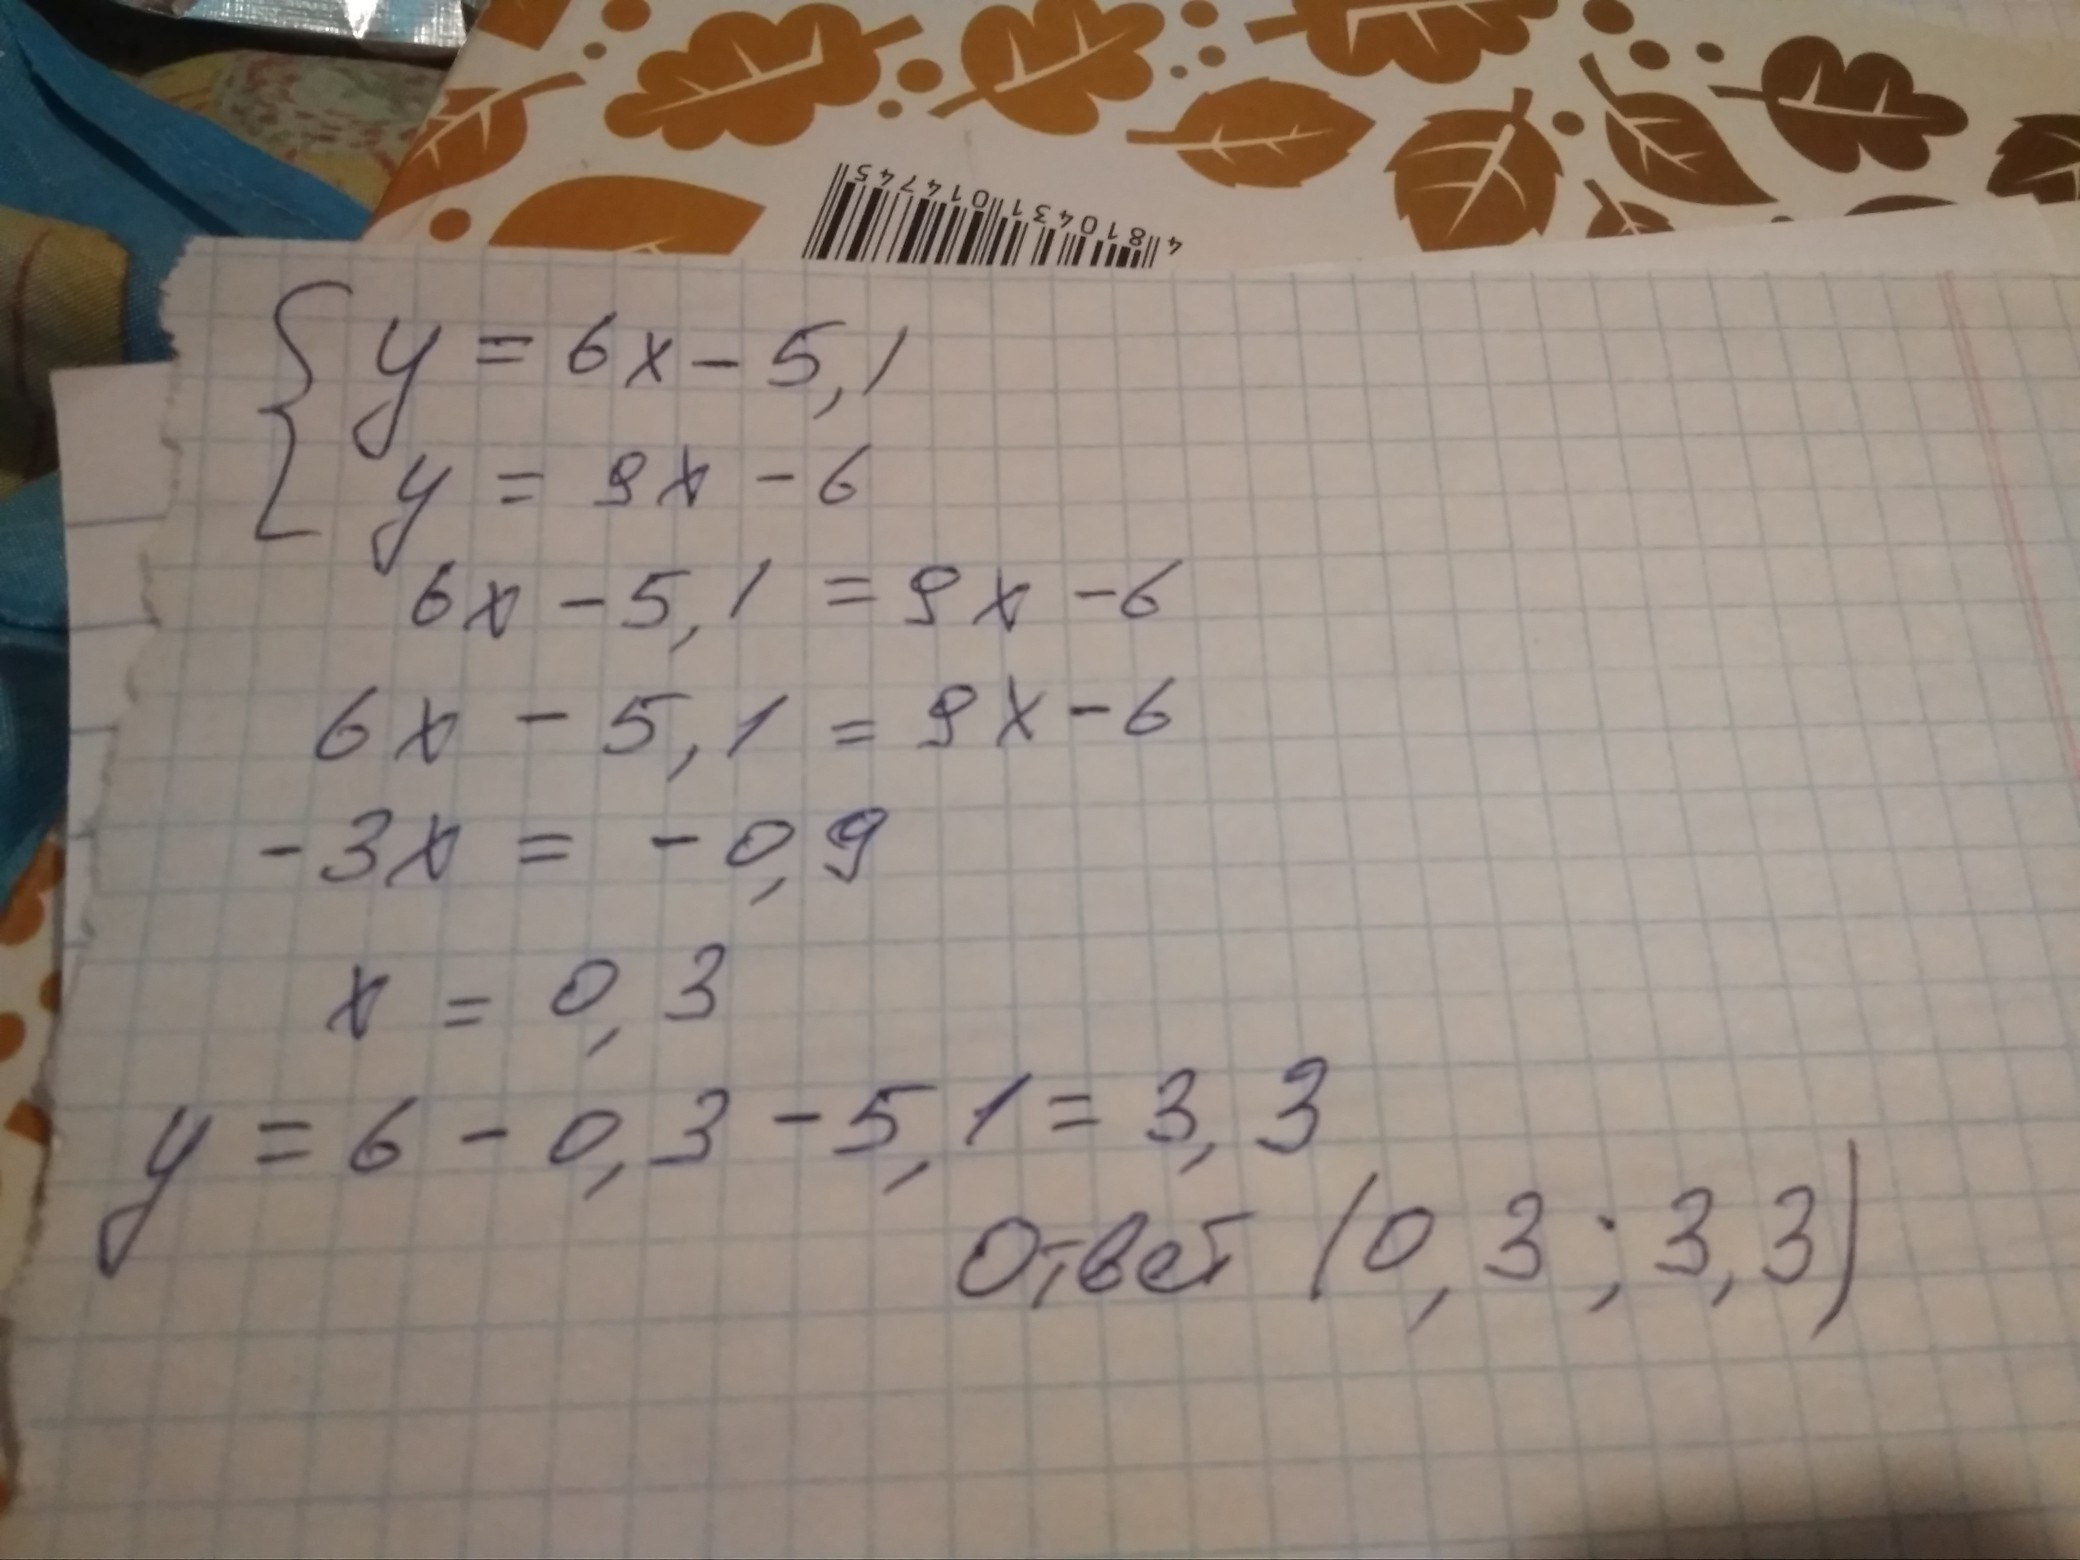 4 810431 014745
{ y = 6x - 5,1
y = 9x - 6
6x - 5,1 = 9x - 6
6x - 5,1 = 9x - 6
-3x = -0,9
x = 0,3
y = 6 - 0,3 - 5,1 = 3,3
Ответ (0,3 ; 3,3)